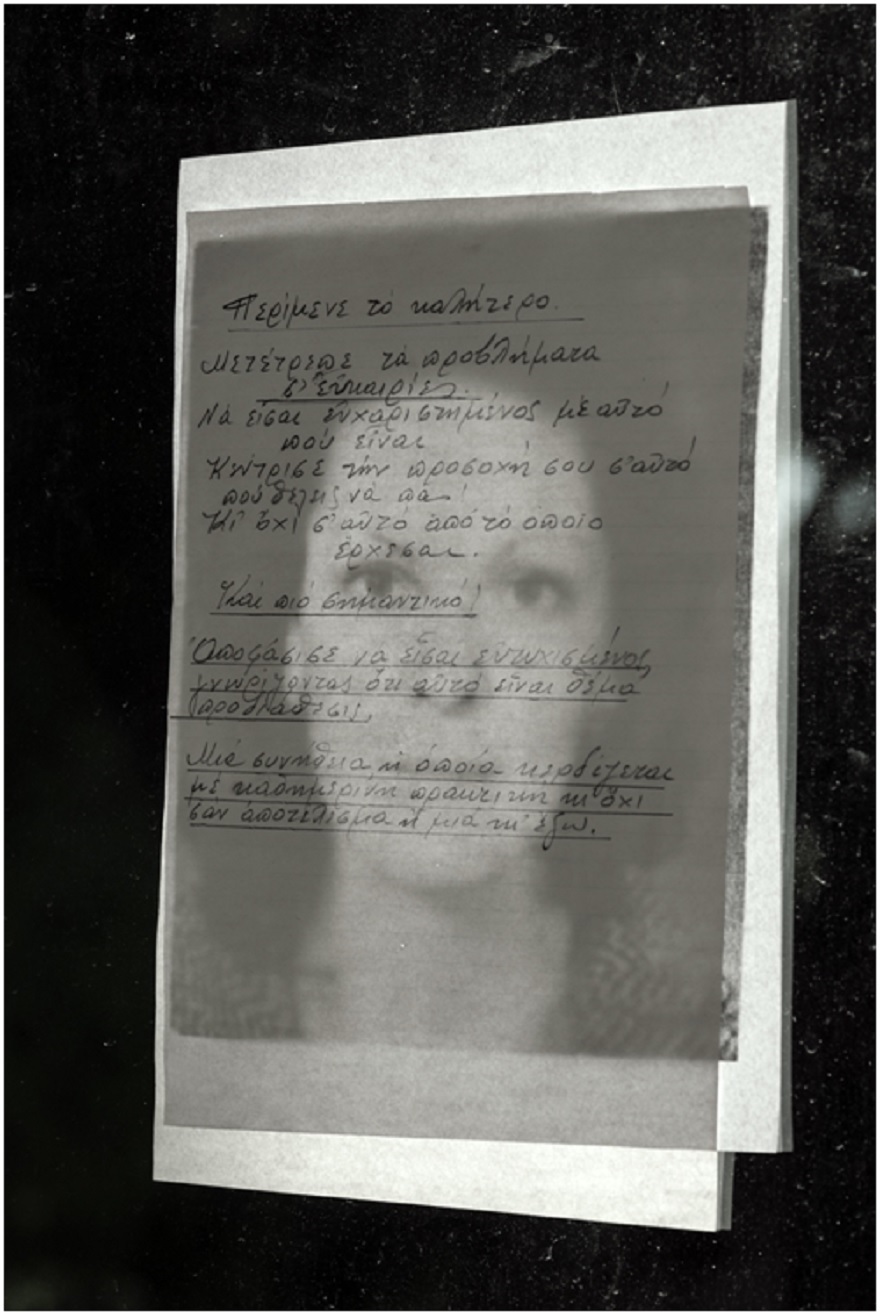 Περίμενε τό καλήτερο.
Μετέτρεπε τά προβλήματα
σ' εὐκαιρίες.
Νά εἶσαι εὐχαριστημένος μέ αὐτό
πού εἶναι
Κέντρισε τήν προσοχή σου σ' αὐτό
πού θέλεις νά πας!
Κι' ὄχι σ' αὐτό ἀπό τό ὁποῖο
ἔρχεσαι.
Καί πιό σημαντικό!
Ἀποφάσισε νά εἶσαι εὐτυχισμένος,
γνωρίζοντας ὅτι αὐτό εἶναι θέμα
Μιά συνήθεια ἡ ὁποία κερδίζεται
μέ καθημερινή πρακτική κι' ὄχι
σάν ἀποτέλεσμα ἤ μιά κι' ἔξω.